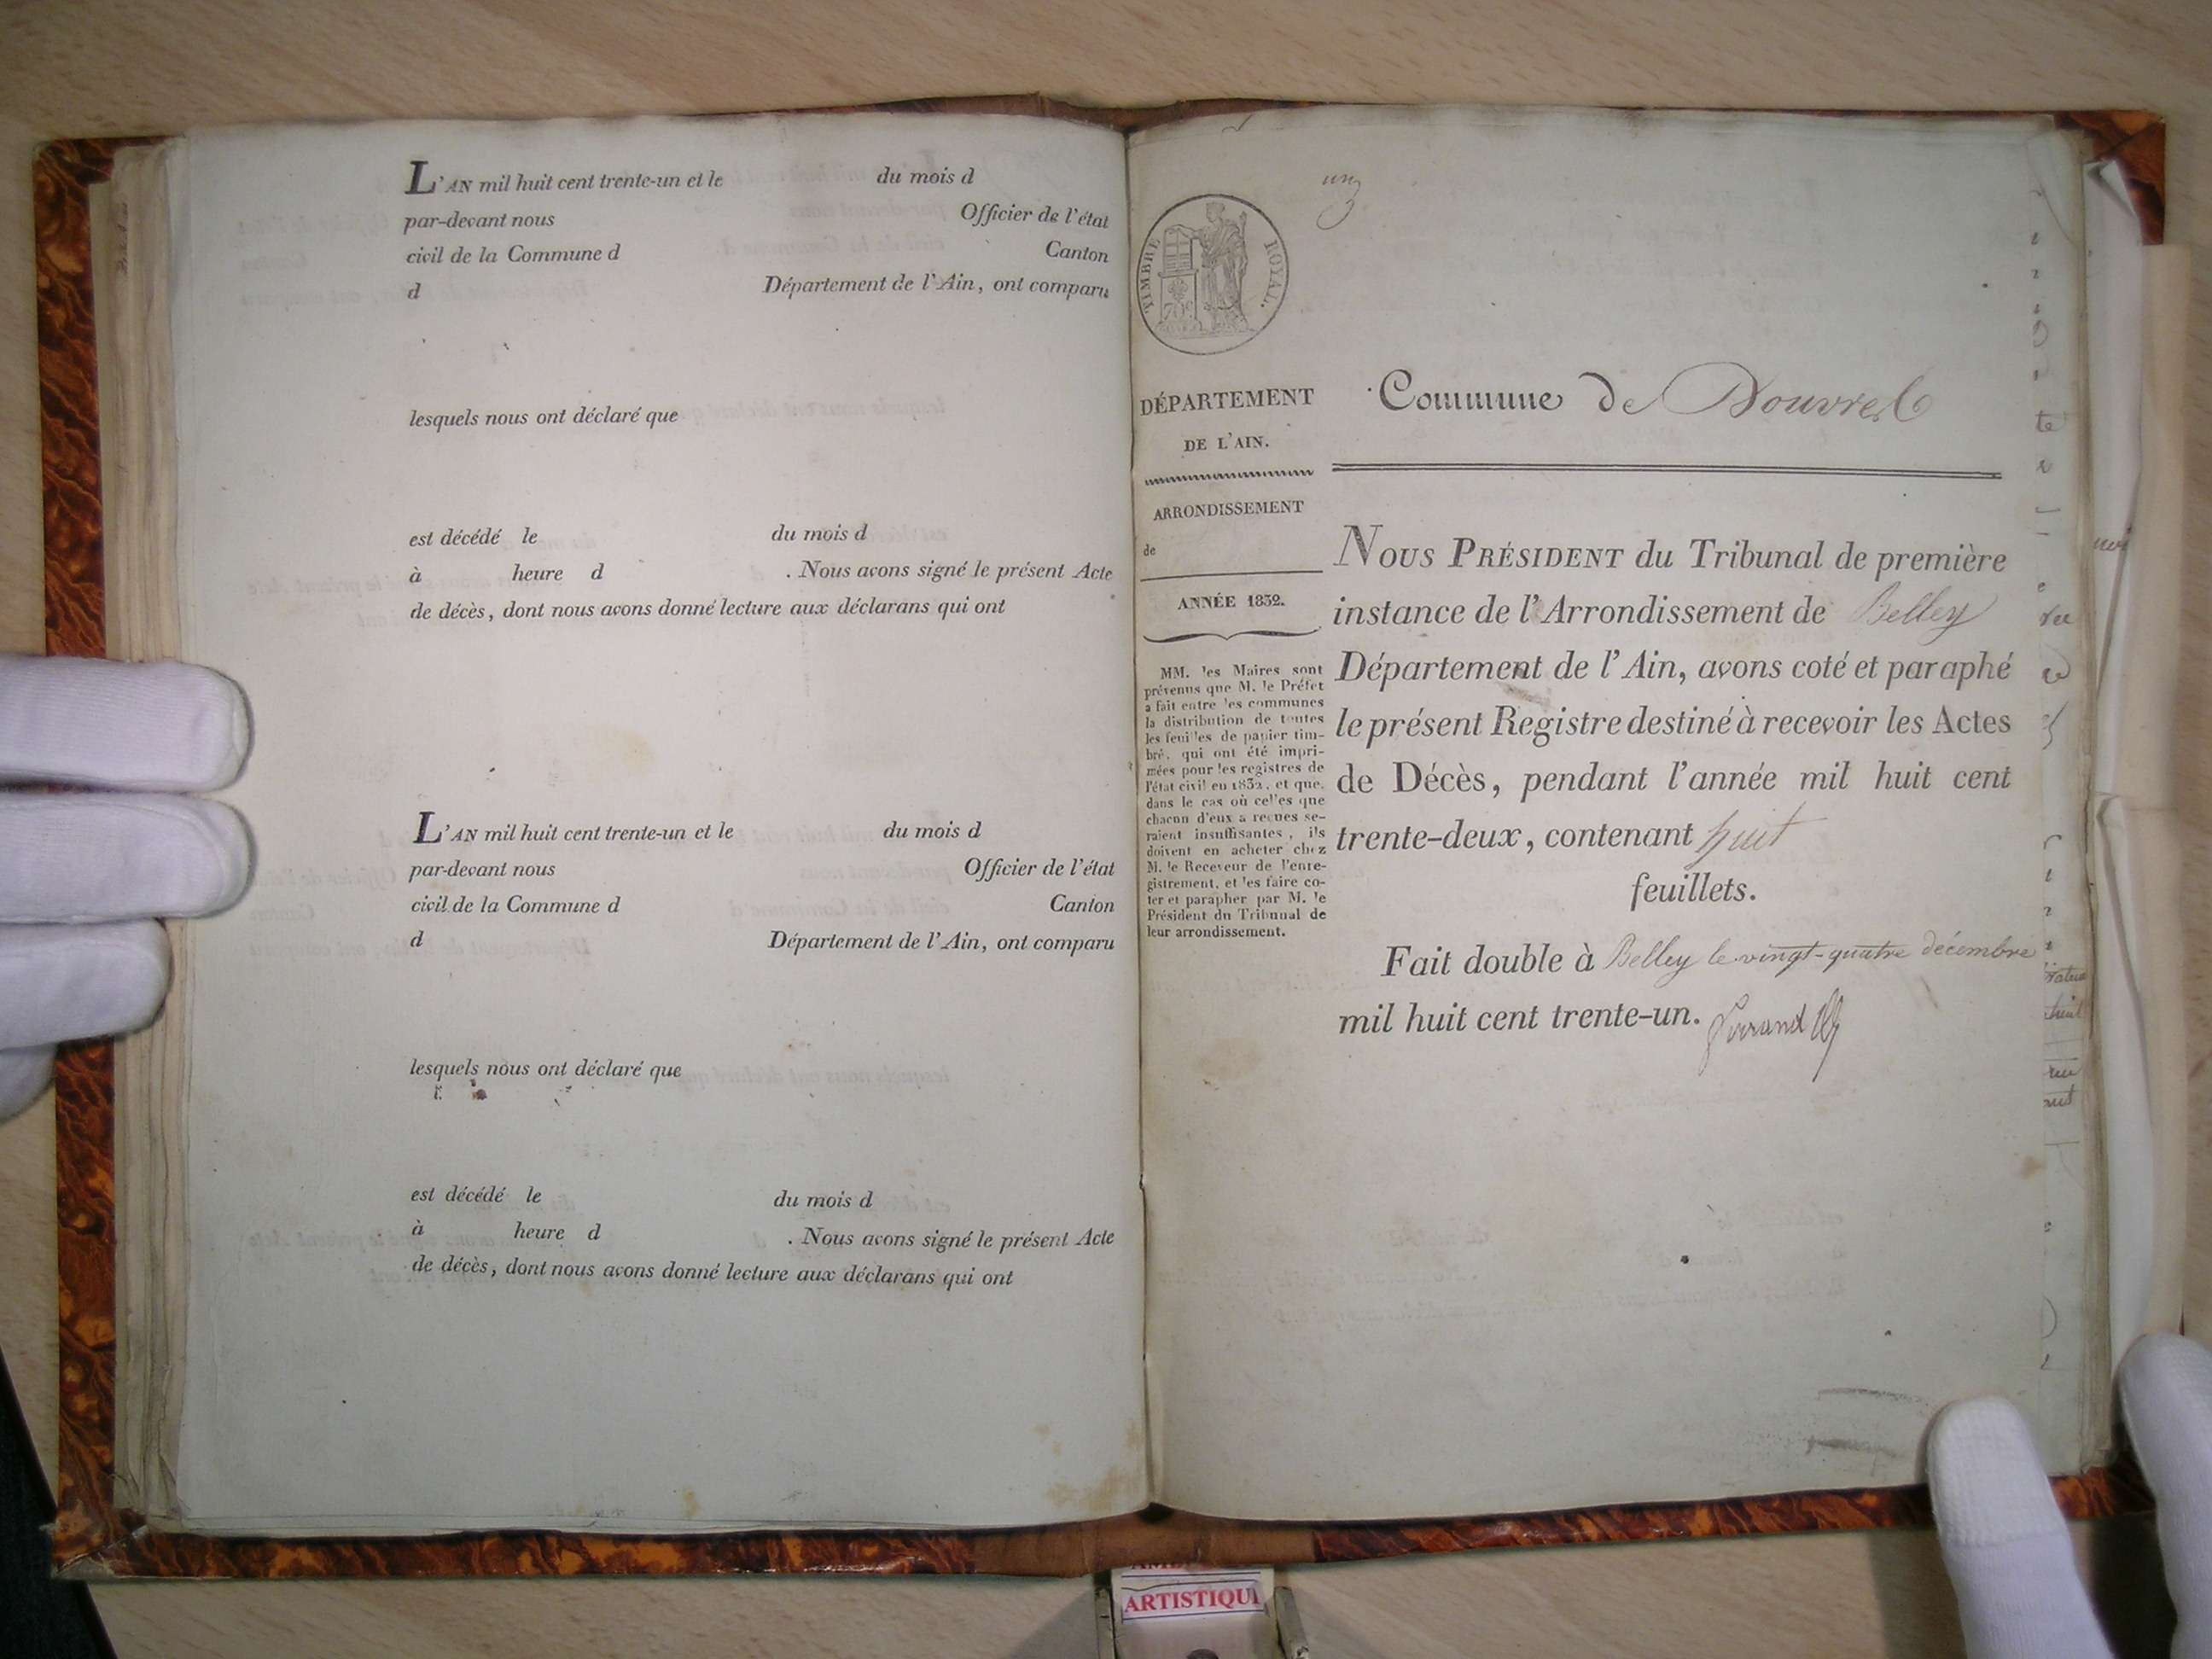 L'AN mil huit cent trente-un et le du mois d
par-devant nous Officier de l'état
civil de la Commune d Canton
d Département de l'Ain, ont comparu
lesquels nous ont déclaré que
est décédé le du mois d
à heure d . Nous avons signé le présent Acte
de décès, dont nous avons donné lecture aux déclarans qui ont
L'AN mil huit cent trente-un et le du mois d
par-devant nous Officier de l'état
civil de la Commune d Canton
d Département de l'Ain, ont comparu
lesquels nous ont déclaré que
est décédé le du mois d
à heure d . Nous avons signé le présent Acte
de décès, dont nous avons donné lecture aux déclarans qui ont
un
TIMBRE ROYAL.
DÉPARTEMENT
DE L'AIN.
ARRONDISSEMENT
de
ANNÉE 1832.
MM. les Maires sont
prévenus que M. le Préfet
a fait entre les communes
la distribution de toutes
les feuilles de papier tim-
bré, qui ont été impri-
mées pour les registres de
l'état civil en 1832, et que,
dans le cas où celles que
chacun d'eux a reçues se-
raient insuffisantes, ils
doivent en acheter chez
M. le Receveur de l'enre-
gistrement, et les faire co-
ter et parapher par M. le
Président du Tribunal de
leur arrondissement.
Commune de Douvres
NOUS PRÉSIDENT du Tribunal de première
instance de l'Arrondissement de Belley
Département de l'Ain, avons coté et paraphé
le présent Registre destiné à recevoir les Actes
de Décès, pendant l'année mil huit cent
trente-deux, contenant huit
feuillets.
Fait double à Belley le vingt-quatre décembre
mil huit cent trente-un.
ARTISTIQU